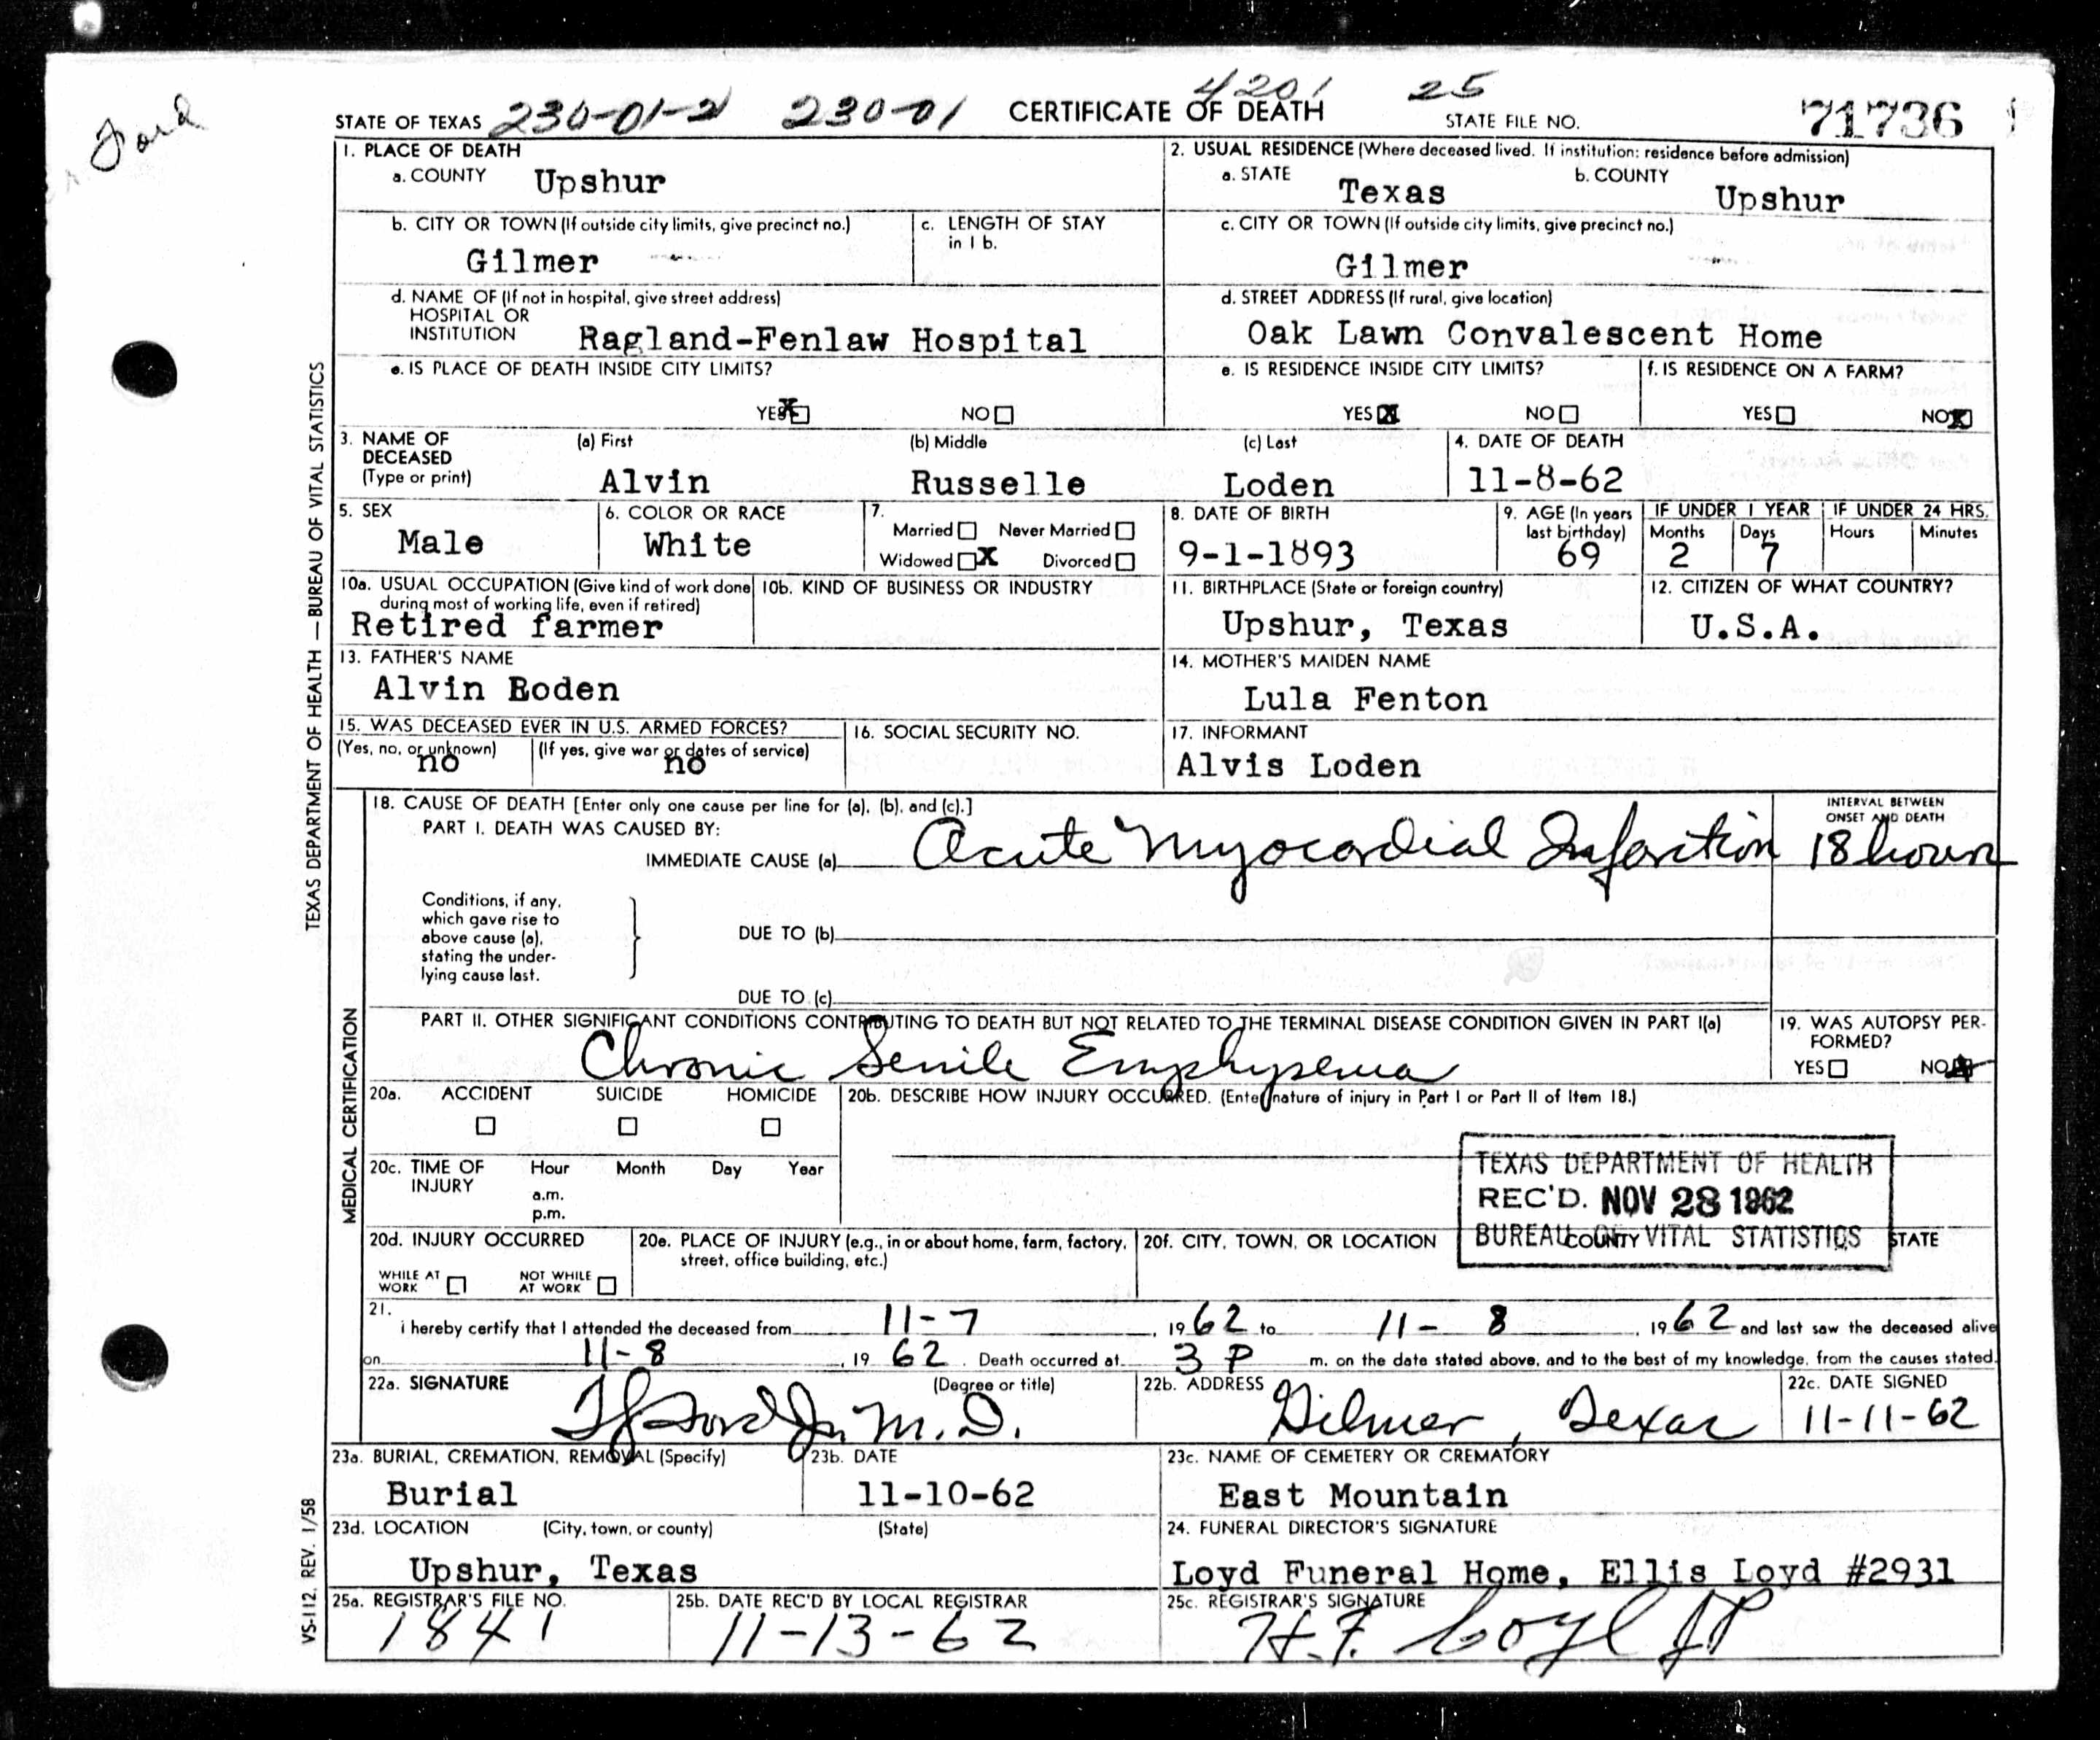 Ford
4201 25
STATE OF TEXAS 230-01-2 230-01 CERTIFICATE OF DEATH STATE FILE NO. 71736
1. PLACE OF DEATH
a. COUNTY Upshur
2. USUAL RESIDENCE (Where deceased lived. If institution: residence before admission)
a. STATE Texas b. COUNTY Upshur
b. CITY OR TOWN (If outside city limits, give precinct no.) Gilmer
c. LENGTH OF STAY in 1 b.
c. CITY OR TOWN (If outside city limits, give precinct no.) Gilmer
d. NAME OF (If not in hospital, give street address)
HOSPITAL OR
INSTITUTION Ragland-Fenlaw Hospital
d. STREET ADDRESS (If rural, give location)
Oak Lawn Convalescent Home
e. IS PLACE OF DEATH INSIDE CITY LIMITS?
YES X NO
e. IS RESIDENCE INSIDE CITY LIMITS?
YES X NO
f. IS RESIDENCE ON A FARM?
YES NO X
3. NAME OF DECEASED (Type or print)
(a) First (b) Middle (c) Last
Alvin Russelle Loden
4. DATE OF DEATH
11-8-62
5. SEX
Male
6. COLOR OR RACE
White
7.
Married Never Married
Widowed X Divorced
8. DATE OF BIRTH
9-1-1893
9. AGE (In years last birthday)
69
IF UNDER 1 YEAR
Months Days
2 7
IF UNDER 24 HRS.
Hours Minutes
10a. USUAL OCCUPATION (Give kind of work done during most of working life, even if retired)
Retired farmer
10b. KIND OF BUSINESS OR INDUSTRY
11. BIRTHPLACE (State or foreign country)
Upshur, Texas
12. CITIZEN OF WHAT COUNTRY?
U.S.A.
13. FATHER'S NAME
Alvin Boden
14. MOTHER'S MAIDEN NAME
Lula Fenton
15. WAS DECEASED EVER IN U.S. ARMED FORCES?
(Yes, no, or unknown) (If yes, give war or dates of service)
no no
16. SOCIAL SECURITY NO.
17. INFORMANT
Alvis Loden
18. CAUSE OF DEATH [Enter only one cause per line for (a), (b), and (c).]
INTERVAL BETWEEN ONSET AND DEATH
PART I. DEATH WAS CAUSED BY:
IMMEDIATE CAUSE (a) Acute Myocardial Infarction 18 hours
Conditions, if any,
which gave rise to
above cause (a),
stating the under-
lying cause last.
DUE TO (b)
DUE TO (c)
PART II. OTHER SIGNIFICANT CONDITIONS CONTRIBUTING TO DEATH BUT NOT RELATED TO THE TERMINAL DISEASE CONDITION GIVEN IN PART I(a)
Chronic Senile Emphysema
19. WAS AUTOPSY PER-
FORMED?
YES NO X
20a. ACCIDENT SUICIDE HOMICIDE
20b. DESCRIBE HOW INJURY OCCURRED. (Enter nature of injury in Part I or Part II of Item 18.)
20c. TIME OF INJURY Hour Month Day Year
a.m.
p.m.
TEXAS DEPARTMENT OF HEALTH
REC'D. NOV 28 1962
BUREAU OF VITAL STATISTICS
20d. INJURY OCCURRED
WHILE AT WORK NOT WHILE AT WORK
20e. PLACE OF INJURY (e.g., in or about home, farm, factory, street, office building, etc.)
20f. CITY, TOWN, OR LOCATION COUNTY STATE
21.
I hereby certify that I attended the deceased from 11-7, 1962 to 11-8, 1962 and last saw the deceased alive
on 11-8, 1962. Death occurred at 3 P m. on the date stated above, and to the best of my knowledge, from the causes stated.
22a. SIGNATURE (Degree or title)
Ford Jr. M.D.
22b. ADDRESS
Gilmer, Texas
22c. DATE SIGNED
11-11-62
23a. BURIAL, CREMATION, REMOVAL (Specify)
Burial
23b. DATE
11-10-62
23c. NAME OF CEMETERY OR CREMATORY
East Mountain
23d. LOCATION (City, town, or county) (State)
Upshur, Texas
24. FUNERAL DIRECTOR'S SIGNATURE
Loyd Funeral Home, Ellis Loyd #2931
25a. REGISTRAR'S FILE NO.
1841
25b. DATE REC'D BY LOCAL REGISTRAR
11-13-62
25c. REGISTRAR'S SIGNATURE
H.F. Coyl JP
TEXAS DEPARTMENT OF HEALTH — BUREAU OF VITAL STATISTICS
MEDICAL CERTIFICATION
VS-112. REV. 1/58